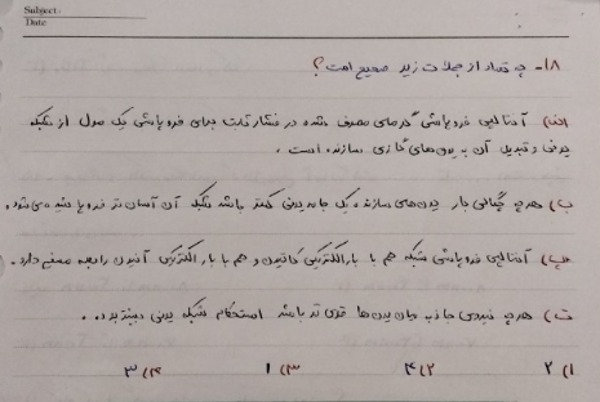 Subject:
Date
۱۸- چه تعداد از جملات زیر صحیح است؟
الف) آنتالپی فروپاشی گرمای مصرف شده در فشار ثابت برای فروپاشی یک مول از شبکه
یونی و تبدیل آن به یون‌های گازی سازنده است.
ب) هرچه چگالی بار یون‌های سازنده یک جامد یونی کمتر باشد شبکه آن آسان تر فروپاشیده می‌شود.
پ) آنتالپی فروپاشی شبکه هم با بار الکتریکی کاتیون و هم با بار الکتریکی آنیون رابطه مستقیم دارد.
ت) هرچه نیروی جاذبه میان یون‌ها قوی تر باشد استحکام شبکه یونی بیشتر بود.
۱) ۲ ۲) ۴ ۳) ۱ ۴) ۳